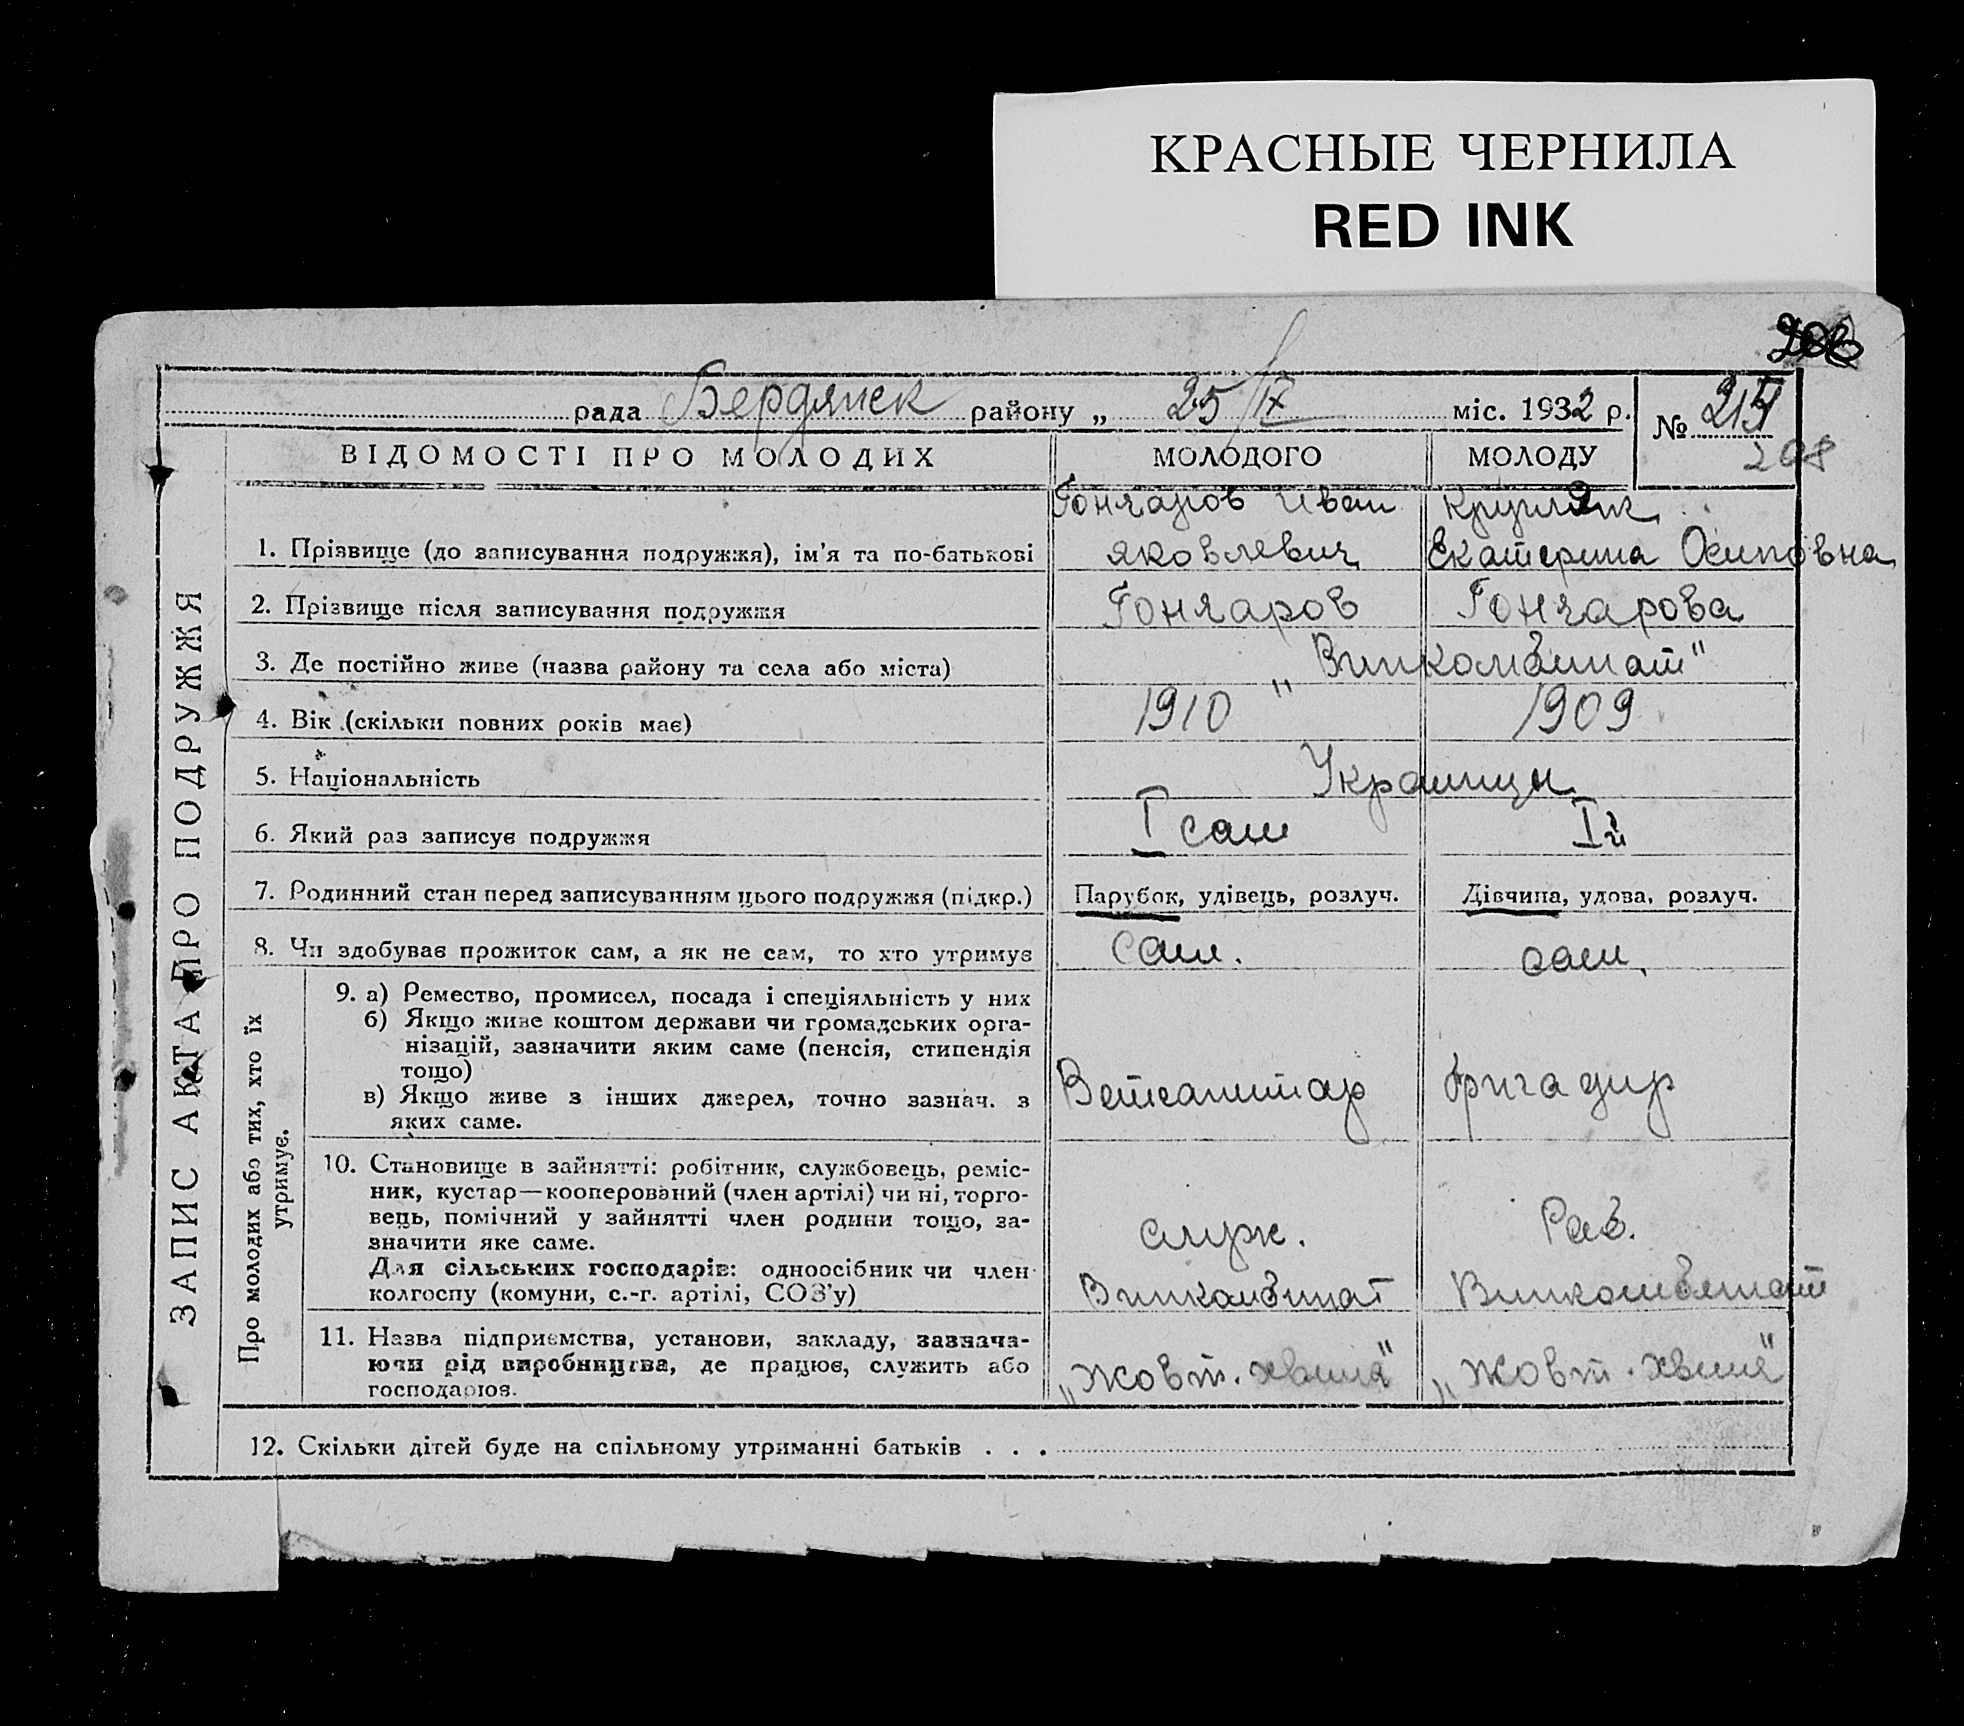 КРАСНЫЕ ЧЕРНИЛА
RED INK
рада Бердянск району „ 25/IX міс. 1932 р.
№
208
ЗАПИС АКТА ПРО ПОДРУЖЖЯ
ВІДОМОСТІ ПРО МОЛОДИХ МОЛОДОГО МОЛОДУ
Гончаров Иван Кругляк
1. Прізвище (до записування подружжя), ім'я та по-батькові Яковлевич Екатерина Осиповна
2. Прізвище після записування подружжя Гончаров Гончарова
3. Де постійно живе (назва району та села або міста) „Винкомбинат"
4. Вік (скільки повних років має) 1910 1909
5. Національність Украинцы
6. Який раз записує подружжя I сам Iй
7. Родинний стан перед записуванням цього подружжя (підкр.) Парубок, удівець, розлуч. Дівчина, удова, розлуч.
8. Чи здобуває прожиток сам, а як не сам, то хто утримує сам. сам.
Про молодих або тих, хто їх утримує.
9. а) Ремество, промисел, посада і спеціяльність у них
б) Якщо живе коштом держави чи громадських орга-
нізацій, зазначити яким саме (пенсія, стипендія
тощо) Ветсанитар бригадир
в) Якщо живе з інших джерел, точно зазнач. з
яких саме.
10. Становище в зайнятті: робітник, службовець, реміс-
ник, кустар—кооперований (член артілі) чи ні, торго-
вець, помічний у зайнятті член родини тощо, за-
значити яке саме. служ. Раб.
Для сільських господарів: одноосібник чи член
колгоспу (комуни, с.-г. артілі, СОЗ'у) Винкомбинат Винкомбинат
11. Назва підприємства, установи, закладу, зазнача-
ючи рід виробництва, де працює, служить або „Жовт. хвиля" „Жовт. хвиля"
господарює.
12. Скільки дітей буде на спільному утриманні батьків . . .